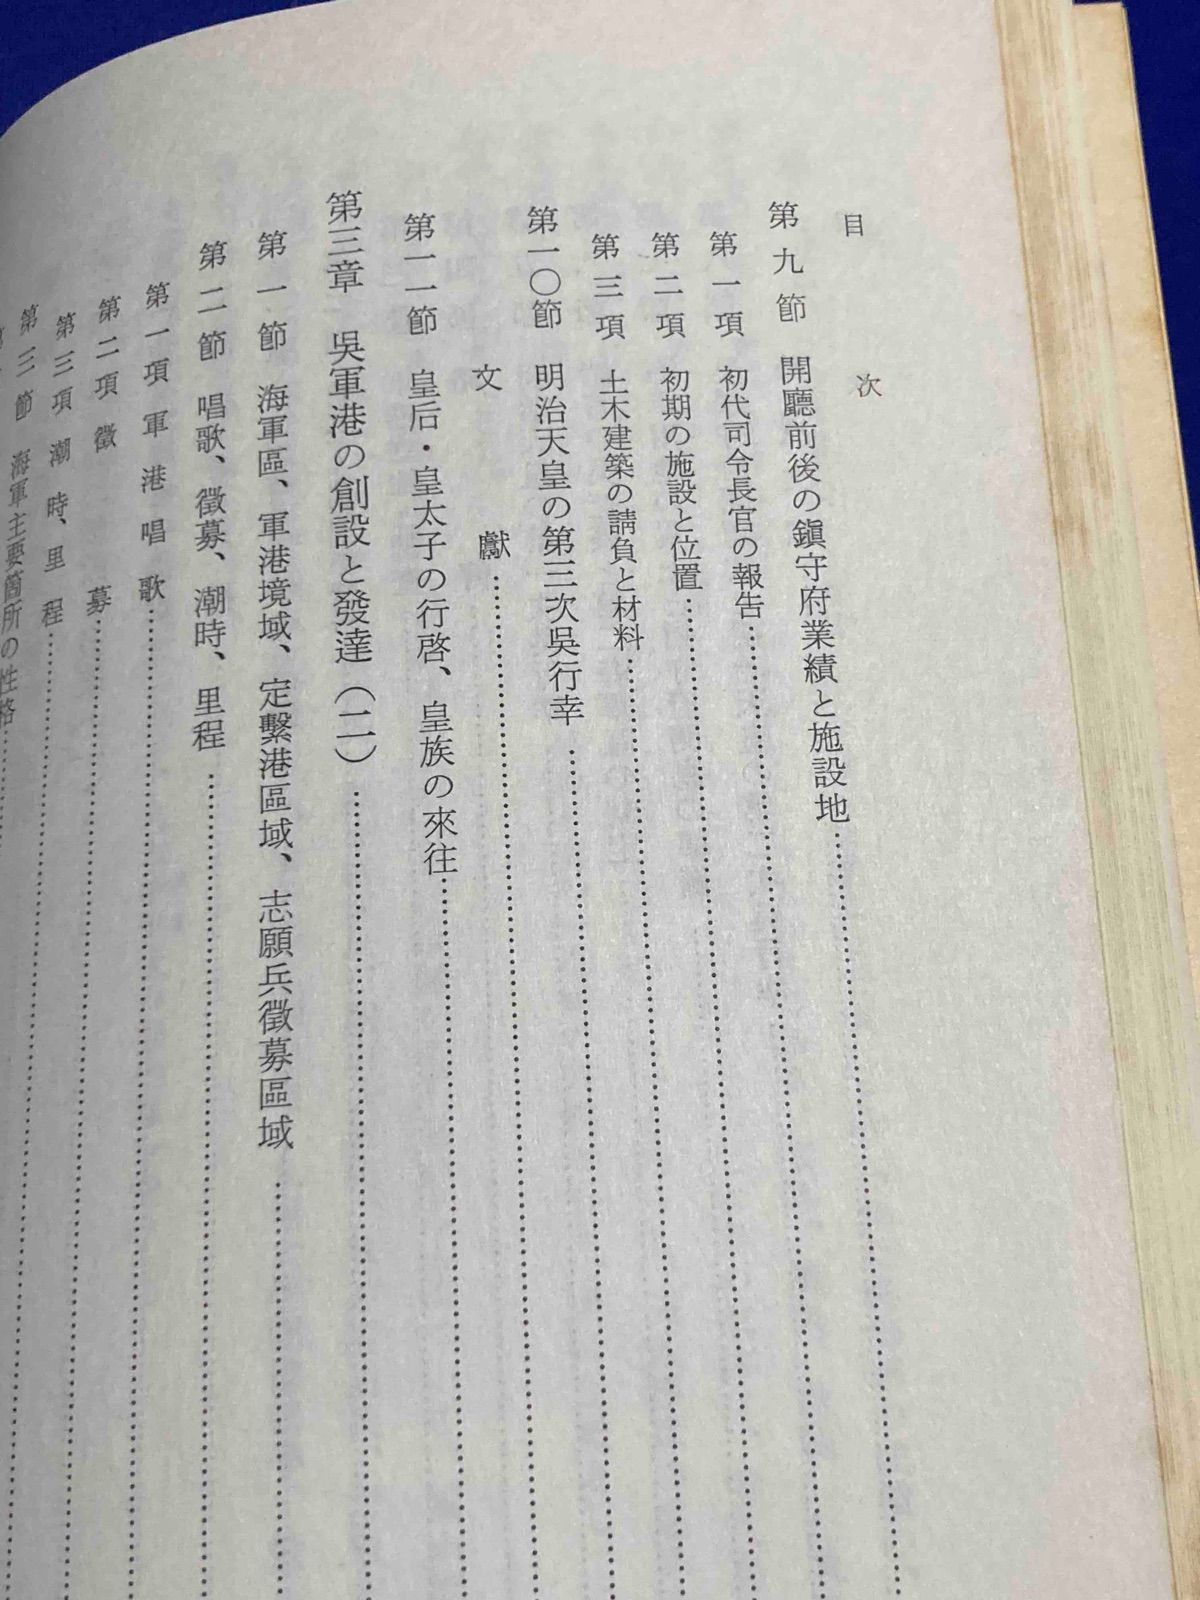 目次
第九節 開廳前後の鎭守府業績と施設地
第一項 初代司令長官の報告
第二項 初期の施設と位置
第三項 土木建築の請負と材料
第一〇節 明治天皇の第三次吳行幸
文獻
第一一節 皇后・皇太子の行啓、皇族の來往
第三章 吳軍港の創設と發達（二）
第一節 海軍區、軍港境域、定繫港區域、志願兵徵募區域
第二節 唱歌、徵募、潮時、里程
第一項 軍港唱歌
第二項 徵募
第三項 潮時、里程
第三節 海軍主要箇所の性格